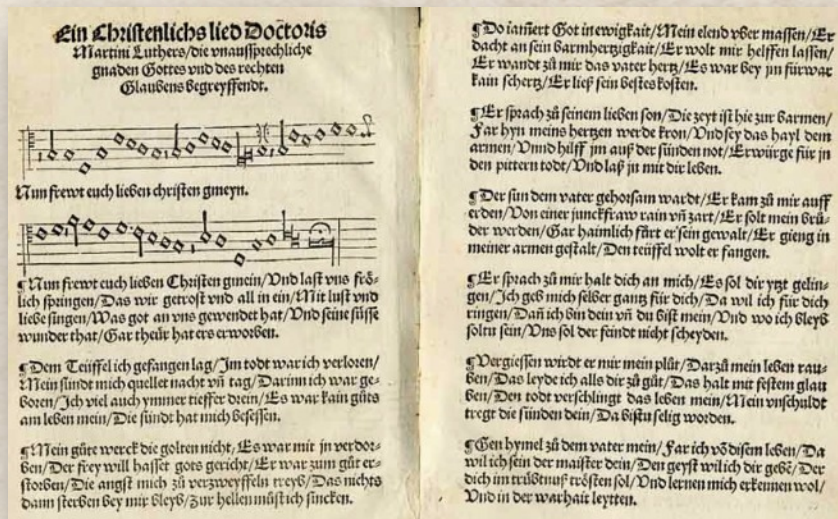 Ein Christenlichs lied Doctoris
Martini Luthers/die vnaussprechliche
gnaden Gottes vnd des rechten
Glaubens begreyffendt.
Nun frewt euch lieben christen gmeyn.
¶Nun frewt euch lieben Christen gmein/Vnd last vns frö-
lich springen/Das wir getrost vnd all in ein/Mit lust vnd
liebe singen/Was got an vns gewendet hat/Vnd seine süsse
wunder that/Gar theür hat ers erworben.
¶Dem Teüffel ich gefangen lag/Im todt war ich verloren/
Mein sündt mich quellet nacht vñ tag/Darinn ich war ge-
boren/Ich viel auch ymmer tieffer drein/Es war kain güts
am leben mein/Die sündt hat mich besessen.
¶Mein güte werck die golten nicht/Es war mit jn verdor-
ben/Der frey will hasset gots gericht/Er war zum güt er-
storben/Die angst mich zü verzweyffeln treyb/Das nichts
dann sterben bey mir bleyb/Zur hellen müst ich sincken.
¶Do iamert Got in ewigkait/Mein elend vber massen/Er
dacht an sein barmhertzigkait/Er wolt mir helffen lassen/
Er wandt zü mir das vater hertz/Es war bey jm fürwar
kain schertz/Er ließ sein bestes kosten.
¶Er sprach zü seinem lieben son/Die zeyt ist hie zur barmen/
Far hyn meins hertzen werde kron/Vnd sey das hayl dem
armen/Vnnd hilff jm auß der sünden not/Erwürge für jn
den pittern todt/Vnd laß jn mit dir leben.
¶Der sun dem vater gehorsam wardt/Er kam zü mir auff
erden/Von einer junckfraw rain vñ zart/Er solt mein brü-
der werden/Gar haimlich fürt er sein gewalt/Er gieng in
meiner armen gestalt/Den teüffel wolt er fangen.
¶Er sprach zü mir halt dich an mich/Es sol dir ytzt gelin-
gen/Ich geb mich selber gantz für dich/Da wil ich für dich
ringen/Dañ ich bin dein vñ du bist mein/Vnd wo ich bleyb
soltu sein/Vns sol der feindt nicht scheyden.
¶Vergiessen wirdt er mir mein plüt/Darzü mein leben rau-
ben/Das leyde ich alls dir zü güt/Das halt mit festem glau
ben/Den todt verschlingt das leben mein/Mein vnschuldt
tregt die sünden dein/Da bistu selig worden.
¶Gen hymel zü dem vater mein/Far ich vō disem leben/Da
wil ich sein der maister dein/Den geyst wil ich dir gebē/Der
dich im trübtnuß trösten sol/Vnd lernen mich erkennen wol/
Vnd in der warhait leytten.